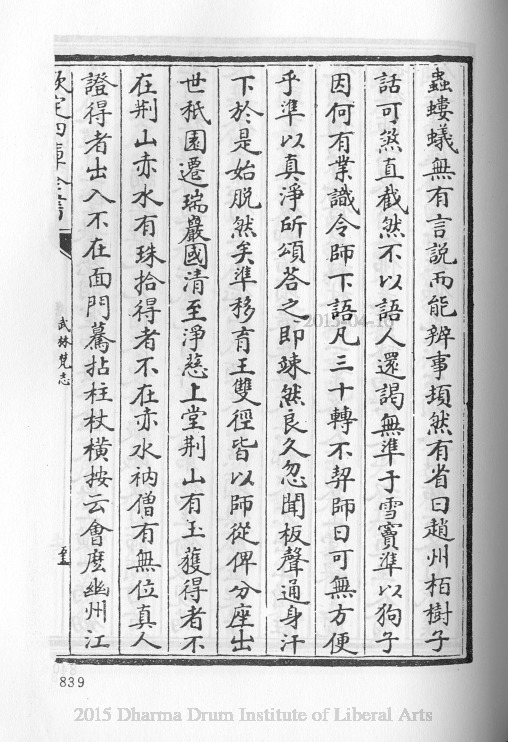 蟲螻蟻無有言說而能辨事頓然有省曰趙州栢樹子
話可煞直截然不以語人還謁無準于雪竇準以狗子
因何有業識令師下語凡三十轉不契師曰可無方便
乎準以真淨所頌荅之即竦然良久忽聞板聲通身汗
下於是始脫然矣準移育王雙徑皆以師從俾分座出
世祇園遷瑞巖國清至淨慈上堂荆山有玉獲得者不
在荆山赤水有珠拾得者不在赤水衲僧有無位真人
證得者出入不在面門驀拈柱杖横按云會麽幽州江
欽定四庫全書
武林梵志
839
2015 Dharma Drum Institute of Liberal Arts